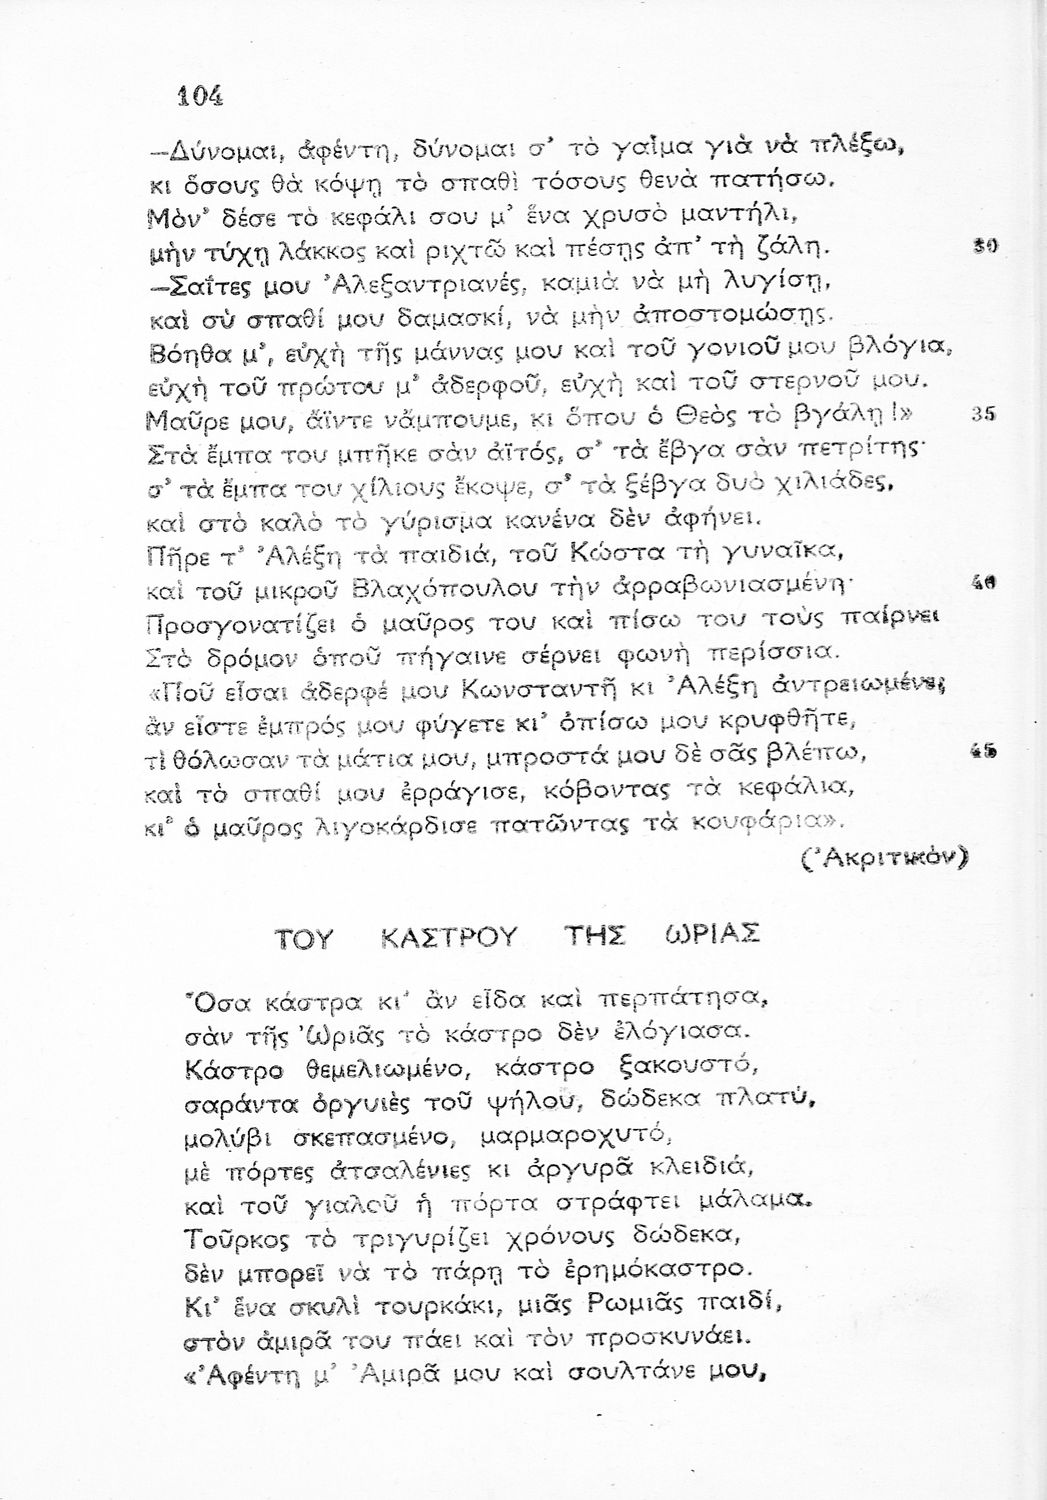 104
—Δύνομαι, ἀφέντη, δύνομαι σ᾽ τὸ γαῖμα γιὰ νὰ πλέξω,
κι ὅσους θὰ κόψῃ τὸ σπαθὶ τόσους θενὰ πατήσω.
Μὸν᾽ δέσε τὸ κεφάλι σου μ᾽ ἕνα χρυσὸ μαντήλι,
μὴν τύχῃ λάκκος καὶ ριχτῶ καὶ πέσῃς ἀπ᾽ τὴ ζάλη. 30
—Σαΐτες μου ᾽Αλεξαντριανές, καμιὰ νὰ μὴ λυγίσῃ,
καὶ σὺ σπαθί μου δαμασκί, νὰ μὴν ἀποστομώσῃς.
Βόηθα μ᾽, εὐχὴ τῆς μάννας μου καὶ τοῦ γονιοῦ μου βλόγια,
εὐχὴ τοῦ πρώτου μ᾽ ἀδερφοῦ, εὐχὴ καὶ τοῦ στερνοῦ μου.
Μαῦρε μου, ἄϊντε νἄμπουμε, κι ὅπου ὁ Θεὸς τὸ βγάλῃ!» 35
Στὰ ἔμπα του μπῆκε σὰν ἀϊτός, σ᾽ τὰ ἔβγα σὰν πετρίτης·
σ᾽ τὰ ἔμπα του χίλιους ἔκοψε, σ᾽ τὰ ξέβγα δυὸ χιλιάδες,
καὶ στὸ καλὸ τὸ γύρισμα κανένα δὲν ἀφήνει.
Πῆρε τ᾽ ᾽Αλέξη τὰ παιδιά, τοῦ Κώστα τὴ γυναῖκα,
καὶ τοῦ μικροῦ Βλαχόπουλου τὴν ἀρραβωνιασμένη· 40
Προσγονατίζει ὁ μαῦρος του καὶ πίσω του τοὺς παίρνει
Στὸ δρόμον ὁποῦ πήγαινε σέρνει φωνὴ περίσσια.
«Ποῦ εἶσαι ἀδερφέ μου Κωνσταντῆ κι ᾽Αλέξη ἀντρειωμένε;
ἂν εἶστε ἐμπρός μου φύγετε κι᾽ ὀπίσω μου κρυφθῆτε,
τὶ θόλωσαν τὰ μάτια μου, μπροστά μου δὲ σᾶς βλέπω, 45
καὶ τὸ σπαθί μου ἐρράγισε, κόβοντας τὰ κεφάλια,
κι᾽ ὁ μαῦρος λιγοκάρδισε πατῶντας τὰ κουφάρια».
(᾽Ακριτικόν)
ΤΟΥ ΚΑΣΤΡΟΥ ΤΗΣ ΩΡΙΑΣ
Ὅσα κάστρα κι᾽ ἂν εἶδα καὶ περπάτησα,
σὰν τῆς ᾽Ωριᾶς τὸ κάστρο δὲν ἐλόγιασα.
Κάστρο θεμελιωμένο, κάστρο ξακουστό,
σαράντα ὀργυιὲς τοῦ ψήλου, δώδεκα πλατύ,
μολύβι σκεπασμένο, μαρμαροχυτό,
μὲ πόρτες ἀτσαλένιες κι ἀργυρᾶ κλειδιά,
καὶ τοῦ γιαλοῦ ἡ πόρτα στράφτει μάλαμα.
Τοῦρκος τὸ τριγυρίζει χρόνους δώδεκα,
δὲν μπορεῖ νὰ τὸ πάρῃ τὸ ἐρημόκαστρο.
Κι᾽ ἕνα σκυλὶ τουρκάκι, μιᾶς Ρωμιᾶς παιδί,
στὸν ἀμιρᾶ του πάει καὶ τὸν προσκυνάει.
«᾽Αφέντη μ᾽ ᾽Αμιρᾶ μου καὶ σουλτάνε μου,